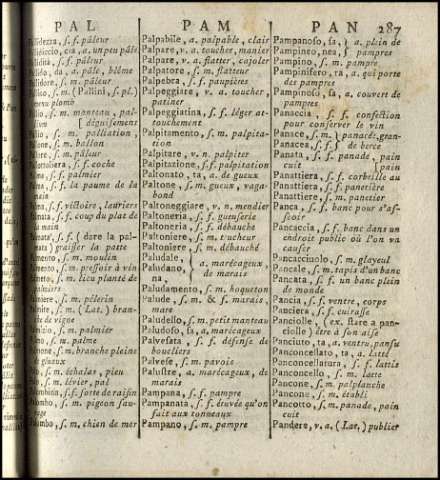 PAL PAM PAN 287
s. f. pâleur
a. un peu pâle
s. f. pâleur
da, a. pâle, blême
s. m. pâleur
s. m. (Pallini, s. pl.)
menu plomb
s. m. manteau, pal-
lium [déguisement
s. m. palliation,
s. m. ballon
s. m. pâleur
s. f. coche
s. f. palmier
s. f. la paume de la
main
s. f. victoire, lauriers
s. f. coup du plat de
la main
s. f. (dare la pal-
graisser la patte
s. m. moulin
s. m. pressoir à vin
s. m. lieu planté de
palmiers
s. m. pélerin
s. m. (Lat.) bran-
che de vigne
s. m. palmier
s. m. palme
s. m. branche pleine
de glueaux
s. m. échalas, pieu
s. m. lévier, pal
s. f. sorte de raisin
s. m. pigeon sau-
vage
s. m. chien de mer
Palpabile, a. palpable, clair
Palpare, v. a. toucher, manier
Palpare, v. a. flatter, cajoler
Palpatore, s. m. flatteur
Palpebra, s. f. paupières
Palpeggiare, v. a. toucher,
patiner
Palpeggiatina, s. f. léger at-
touchement
Palpitamento, s. m. palpita-
tion
Palpitare, v. n. palpiter
Palpitazione, s. f. palpitation
Paltonato, ta, a. de gueux
Paltone, s. m. gueux, vaga-
bond
Paltoneggiare, v. n. mendier
Paltoneria, s. f. gueuserie
Paltoneria, s. f. débauche
Paltoniere, s. m. trucheur
Paltoniere, s. m. débauché
Paludale, } a. marécageux,
Paludano, } de marais
na
Paludamento, s. m. hoqueton
Palude, s. m. & f. marais,
mare
Paludello, s. m. petit manteau
Paludoso, sa, a. marécageux
Palvesata, s. f. défense de
boucliers
Palvese, s. m. pavois
Palustre, a. marécageux, de
marais
Pampana, s. f. pampre
Pampanata, s. f. étuvée qu'on
fait aux tonneaux
Pampano, s. m. pampre
Pampanoso, sa, } a. plein de
Pampineo, nea, } pampres
Pampino, s. m. pampre
Pampinifero, ra, a. qui porte
des pampres
Pampinoso, sa, a. couvert de
pampres
Panaccia, s. f. confection
pour conserver le vin
Panace, s. m. } panacée, gran-
Panacea, s. f. } de berce
Panata, s. f. panade, pain
cuit
Panattiera, s. f. corbeille au
Panattiera, s. f. panetière
Panattiere, s. m. panetier
Panca, s. f. banc pour s'as-
seoir
Pancaccia, s. f. banc dans un
endroit public où l'on va
causer
Pancacciuolo, s. m. glayeul
Pancale, s. m. tapis d'un banc
Pancata, s. f. un banc plein
de monde
Pancia, s. f. ventre, corps
Panciera, s. f. cuirasse
Panciolle, (ex. stare a pan-
ciolle) être à son aise
Panciuto, ta, a. ventru, pansu
Panconcellato, ta, a. latté
Panconcellatura, s. f. lattis
Panconcello, s. m. latte
Pancone, s. m. palplanche
Pancone, s. m. établi
Pancotto, s. m. panade, pain
cuit
Pandere, v. a. (Lat.) publier